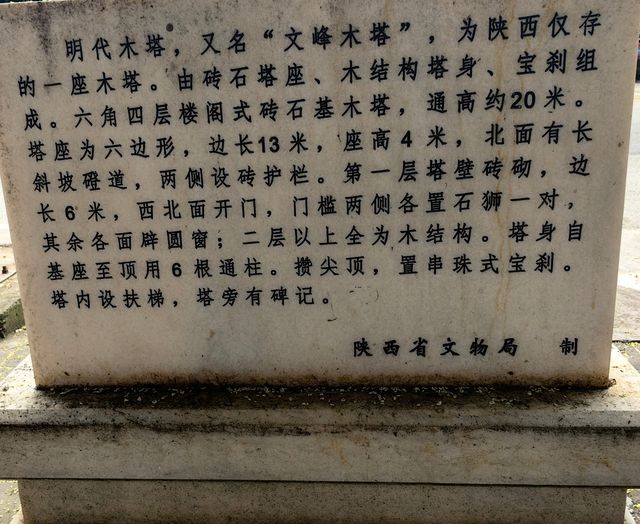 明代木塔，又名“文峰木塔”，为陕西仅存
的一座木塔。由砖石塔座、木结构塔身、宝刹组
成。六角四层楼阁式砖石基木塔，通高约20米。
塔座为六边形，边长13米，座高4米，北面有长
斜坡磴道，两侧设砖护栏。第一层塔壁砖砌，边
长6米，西北面开门，门槛两侧各置石狮一对，
其余各面辟圆窗；二层以上全为木结构。塔身自
基座至顶用6根通柱。攒尖顶，置串珠式宝刹。
塔内设扶梯，塔旁有碑记。
陕西省文物局 制